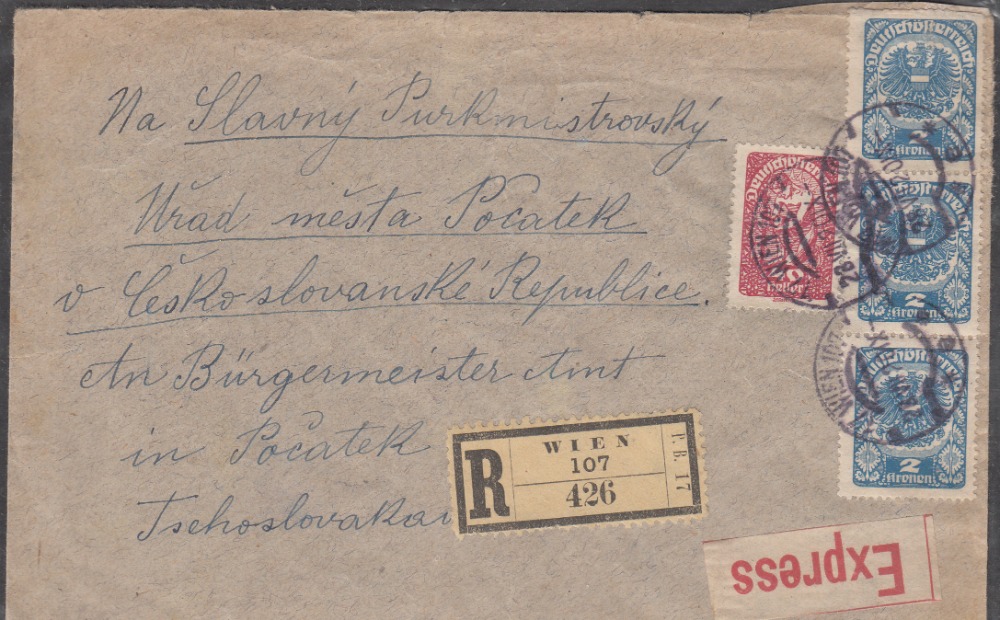 Na Slavný Purkmistrovský
Úřad města Počatek
v Česko slovanské Republice.
An Bürgermeister Amt
in Počatek
Tschoslovakau
R
WIEN
107
426
P.B. 17
Express
Deutschösterreich
2
Kronen
Deutschösterreich
2
Kronen
Deutschösterreich
2
Kronen
Deutschösterreich
Heller
WIEN 107
WIEN 107